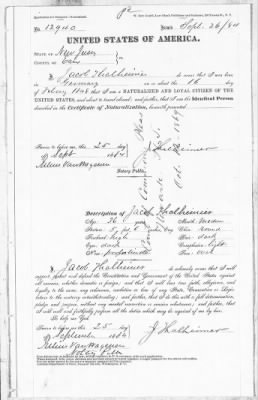 No. 12940
Issued Sept. 26/84
UNITED STATES OF AMERICA.
STATE OF New Jersey
COUNTY OF Essex
I, Jacob Thalheimer do swear that I was born
in Germany on or about the
of 1848 that I am a NATURALIZED AND LOYAL CITIZEN OF THE
UNITED STATES, and about to travel abroad; and further, that I am the Identical Person
described in the Certificate of Naturalization, herewith presented
Sworn to before me this 25 day
of Sept 1884
J Thalheimer
Notary Public.
Description of Jacob Thalheimer
Age: 36
Mouth: medium
Stature: 5 feet 6
Chin: Round
Forehead: high
Hair: dark
Eyes: dark
Complexion: light
Nose: proportionate
Face: oval
I, Jacob Thalheimer do solemnly swear that I will
support, protect and defend the Constitution and Government of the United States against
all enemies, whether domestic or foreign; and that I will bear true faith, allegiance, and
loyalty to the same, any ordinance, resolution or law of any State, Convention or Legis-
lature to the contrary notwithstanding; and further, that I do this with a full determination,
pledge and purpose, without any mental reservation or evasion whatsoever; and further, that
I will well and faithfully perform all the duties which may be required of me by law.
So help me God.
Sworn to before me this 25 day
of September 1884
J Thalheimer
Notary Public